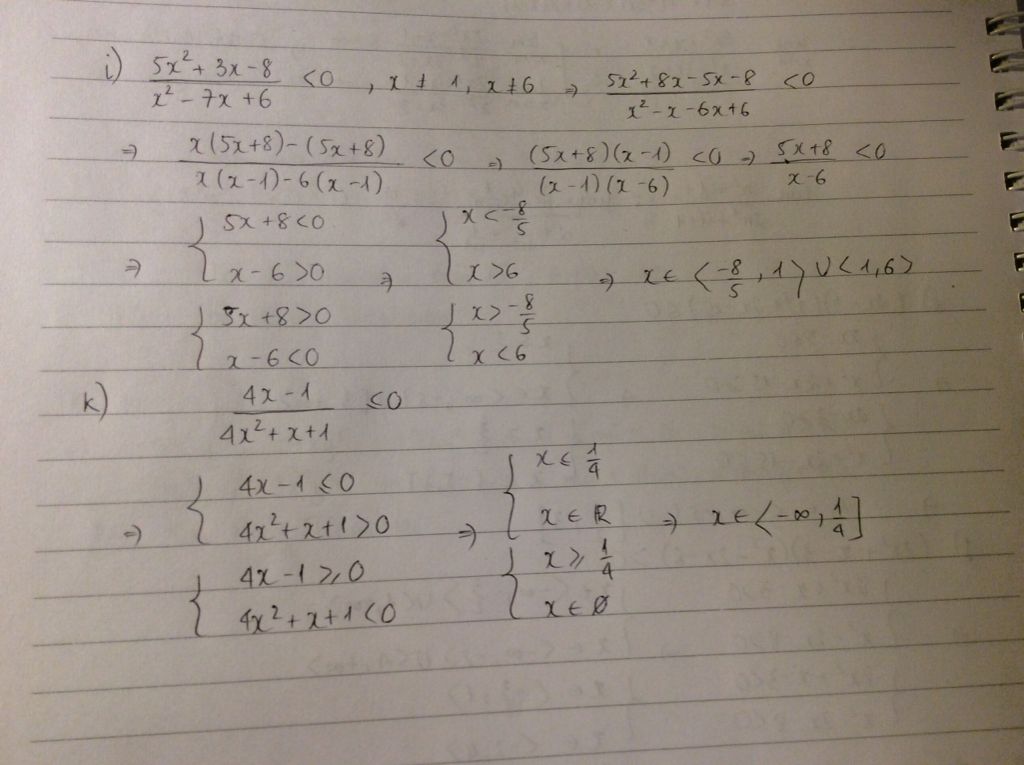 i) (5x² + 3x - 8)/(x² - 7x + 6) < 0 , x ≠ 1, x ≠ 6 ⇒ (5x² + 8x - 5x - 8)/(x² - x - 6x + 6) < 0
⇒ (x(5x+8) - (5x+8))/(x(x-1) - 6(x-1)) < 0 ⇒ ((5x+8)(x-1))/((x-1)(x-6)) < 0 ⇒ (5x+8)/(x-6) < 0
{ 5x + 8 < 0 { x < -8/5
⇒ x - 6 > 0 ⇒ x > 6 ⇒ x ∈ ⟨-8/5, 1⟩ ∪ ⟨1, 6⟩
{ 5x + 8 > 0 { x > -8/5
x - 6 < 0 x < 6
k) (4x - 1)/(4x² + x + 1) ≤ 0
{ 4x - 1 ≤ 0 { x ≤ 1/4
⇒ 4x² + x + 1 > 0 ⇒ x ∈ ℝ ⇒ x ∈ ⟨-∞, 1/4]
{ 4x - 1 ⩾ 0 { x ⩾ 1/4
4x² + x + 1 < 0 x ∈ Ø